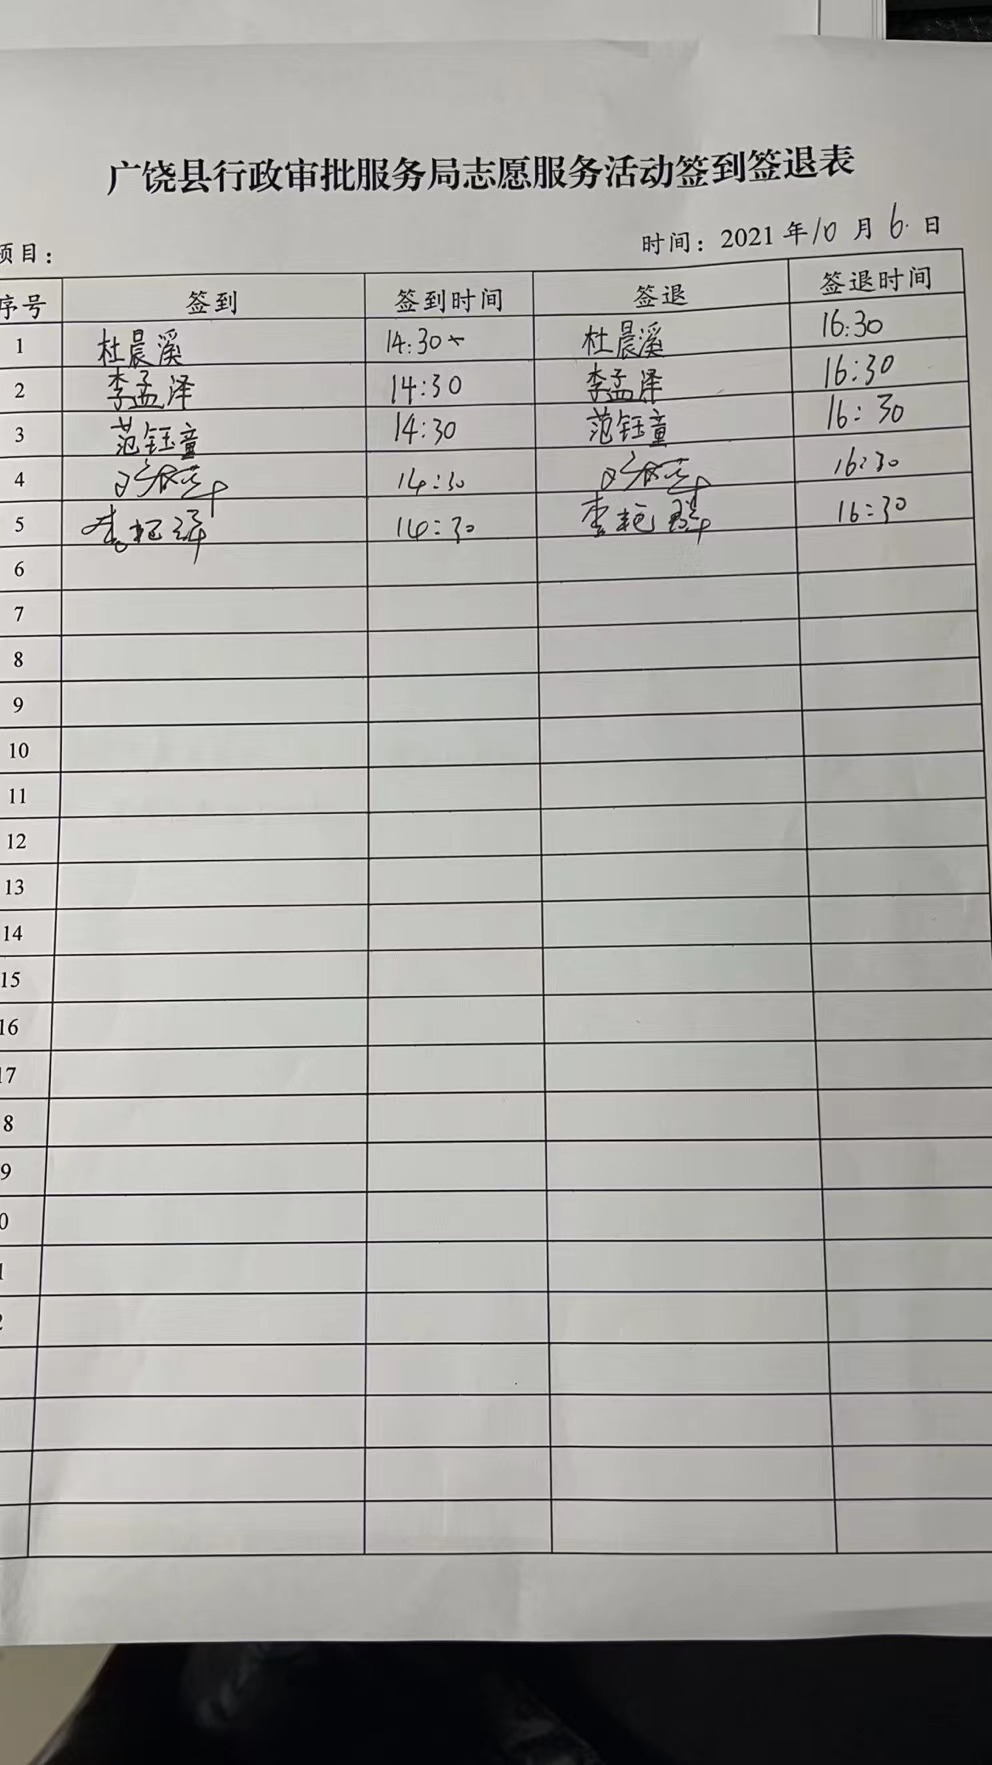 广饶县行政审批服务局志愿服务活动签到签退表
项目： 时间：2021年10月6日
序号 签到 签到时间 签退 签退时间
1 杜晨溪 14:30 杜晨溪 16:30
2 李孟泽 14:30 李孟泽 16:30
3 范钰童 14:30 范钰童 16:30
4 14:30 16:30
5 14:30 16:30
6
7
8
9
10
11
12
13
14
15
16
17
8
9
0
1
2